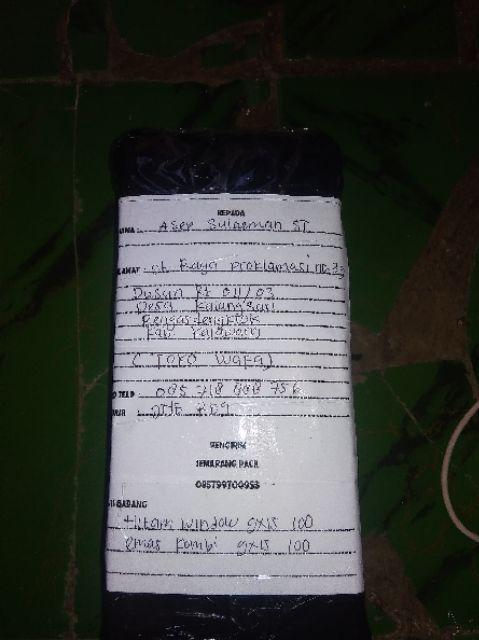 KEPADA
NAMA : Asep Sulaeman ST
ALAMAT : Jl. Raya proklamasi no. 73
Dusun Rt 04/03
Desa Kalangsari
Rengasdengklok
Kab Karawang
( TOKO WAFA )
NO TELP : 085 718
JNE REG
PENGIRIM
SEMARANG PACK
085799700953
ISI BARANG
Hitam window 9x15 100
Emas Kombi 9x15 100